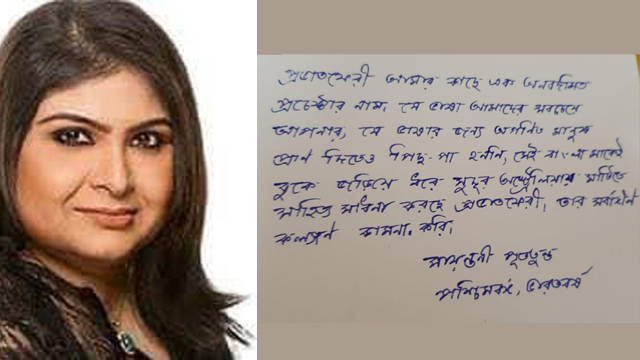 প্রভাতফেরী আমার কাছে এক অনবদ্যমিত
প্রচেষ্টার নাম, যে ভাষা আমাদের সবচেয়ে
আপনার, যে ভাষার জন্য অগণিত মানুষ
প্রাণ দিতেও পিছ-পা হননি, সেই বাংলা মাকেই
বুকে জড়িয়ে ধরে সুদূর অস্ট্রেলিয়ার মাটিতে
সাহিত্য সাধনা করছে প্রভাতফেরী, তার সর্বাঙ্গীন
কল্যাণ কামনা করি,
সায়ন্তনী পূততুন্ড
পশ্চিমবঙ্গ, ভারতবর্ষ